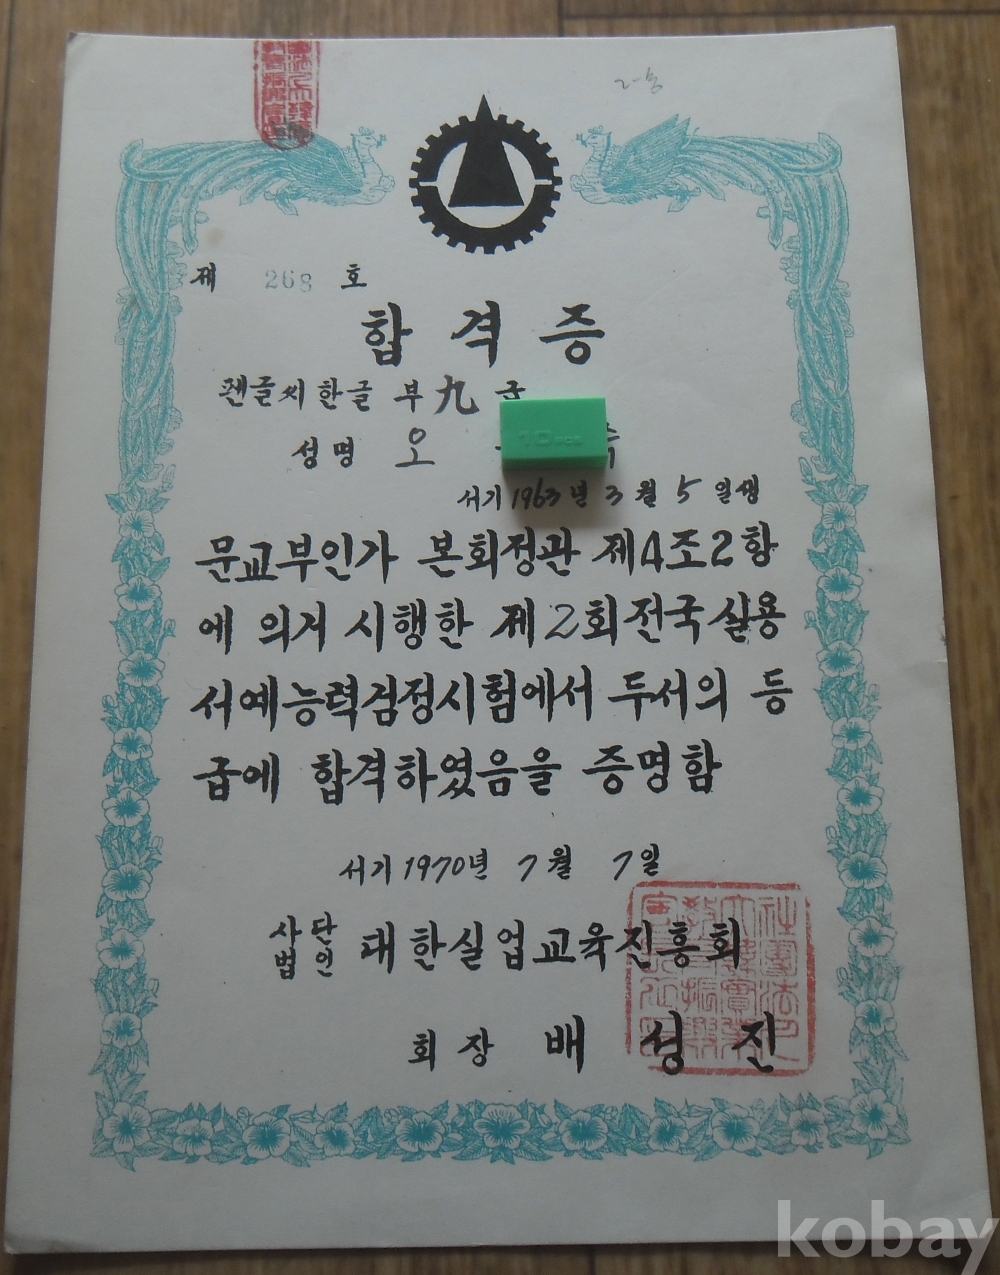 제 268 호
합격증
펜글씨한글 부 九 급
성명 오
서기 1963년 3월 5일생
문교부인가 본회정관 제4조2항
에 의거 시행한 제2회전국실용
서예능력검정시험에서 두서의 등
급에 합격하였음을 증명함
서기 1970년 7월 7일
사단법인 대한실업교육진흥회
회장 배성진
kobay